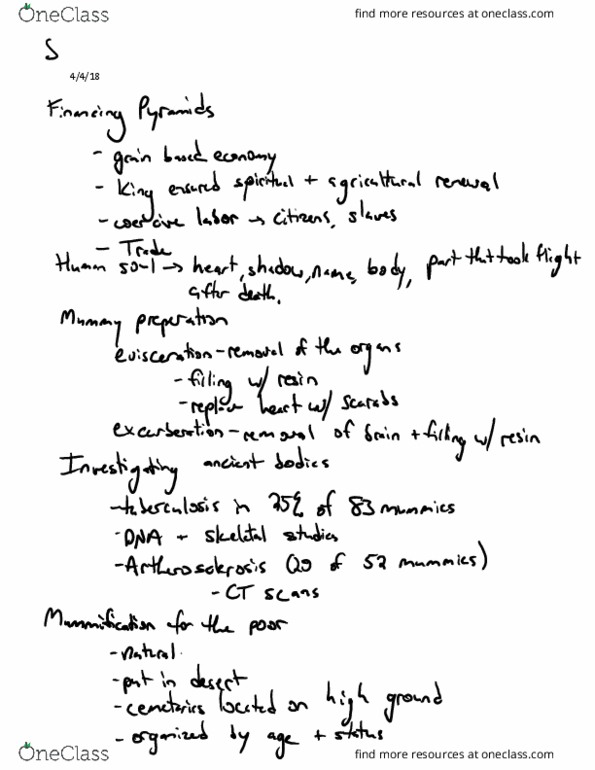 OneClass find more resources at oneclass.com
S
4/4/18
Financing Pyramids
- grain based economy
- King ensured spiritual + agricultural renewal
- coercive labor → citizens, slaves
- Trade
Human soul → heart, shadow, name, body, part that took flight
after death.
Mummy preperation
evisceration - removal of the organs
- filling w/ resin
- replace heart w/ scarabs
excerberation - removal of brain + filling w/ resin
Investigating ancient bodies
- tuberculosis in 25% of 83 mummies
- DNA + skeletal studies
- Artherosclerosis (20 of 52 mummies)
- CT scans
Mummification for the poor
- natural.
- put in desert
- cemeteries located on high ground
- organized by age + status
OneClass find more resources at oneclass.com